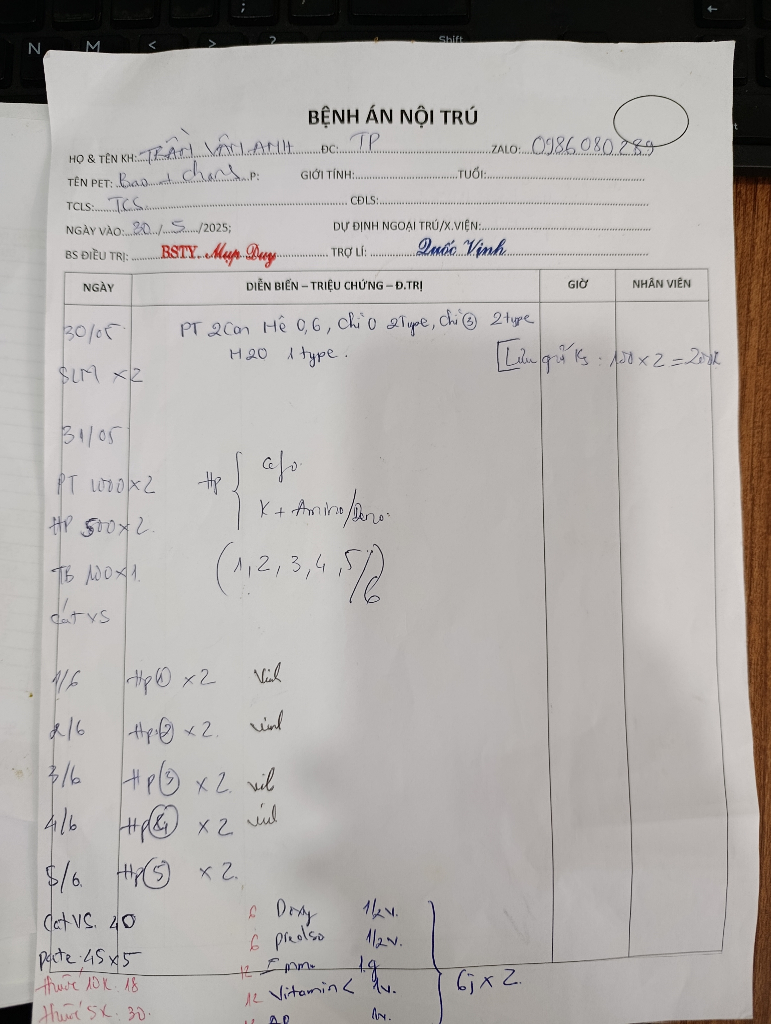 N M < > ? Shift
BỆNH ÁN NỘI TRÚ
HỌ & TÊN KH: TRẦN VÂN ANH ĐC: TP ZALO: 0986080289
TÊN PET: Bao + P: GIỚI TÍNH: TUỔI:
TCLS: TCS CĐLS:
NGÀY VÀO: 30/5/2025; DỰ ĐỊNH NGOẠI TRÚ/X.VIỆN:
BS ĐIỀU TRỊ: BSTY. Mụp Duy TRỢ LÍ: Quốc Vinh
NGÀY DIỄN BIẾN – TRIỆU CHỨNG – Đ.TRỊ GIỜ NHÂN VIÊN
30/05 PT 2 Con Mê 0,6, Chỉ 0 2 Type, Chỉ ③ 2 type
H20 1 type.
SLM x2 [Lưu giữ : 100 x 2 = 200k
31/05
PT 1000 x2 Hp { Cefo
HP 500 x 2. K + Amino/
TB 100 x 1. (1, 2, 3, 4, 5/6)
Cát VS
1/6 Hp① x 2 Vinh
2/6 Hp② x 2. Vinh
3/6 Hp③ x 2. Vinh
4/6 Hp④ x 2 Vinh
5/6. Hp⑤ x 2.
Cát VS. 40 6 Doxy 1/2v.
pate. 45 x 5 6 1/2v.
12 1g
thuốc 10K. 18 12 Vitamin C 1v. } 6j x 2.
thuốc 5K. 30. AD 1v.